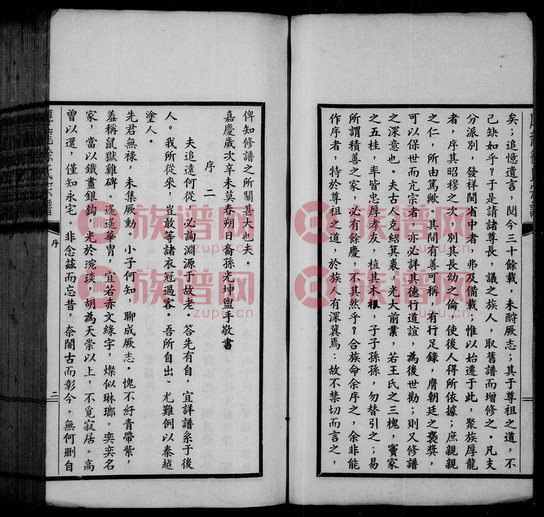 矣；追憶遺言，閱今三十餘載，未酧厥志；其于尊祖之道，不
已缺如乎？于是請諸尊長，議之族人，取舊譜而增修之。凡支
分派別，發祥閩省中者，弗及備載，惟以始遷于此，聚族厚龍
者，序其昭穆之次，別其長幼之倫，使後人得所依據；庶親親
之仁，所由篤歟，其間有善可稱，有行足錄，膺朝廷之褒獎，
可以保世而亢宗者，亦必詳其德行道誼，為後世勸；則又修譜
之深意也。夫古人克紹箕裘，光大前業，若王氏之三槐，竇家
之五桂，率皆忠厚孝友，植其本根，子子孫孫，勿替引之；易
所謂積善之家，必有餘慶，不其然乎？合族命余序之，余非能
作序者，特於尊祖之道，於族人有深冀焉：故不禁切而言之，
俾知修譜之所關甚大也夫。
嘉慶歲次辛未莫春朔日裔孫光坤盥手敬書
序二
夫追遠何從，必詢淵源于故老。答先有自，宜詳譜系于後
人。我所從來，豈敢等諸衣冠過客。吾所自出，尤難例以秦越
塗人。
先君無祿，未集厥勳。小子何知，聊成厥志。愧不紆青帶紫，
羞稱鼠獄雞碑。遙遙華胄，宜若赤文綠字，燦似琳瑯。奕奕名
家，當以鐵畫銀鈎，光於琬琰，胡為天崇以上，不覓寂居。高
曾以還，僅知永宅。非念茲而忘昔，奈闇古而彰今。無何刪自
序
二
族谱网
zupu.cn
族谱网
zupu.cn
族谱网
zupu.cn
族谱网
zupu.cn